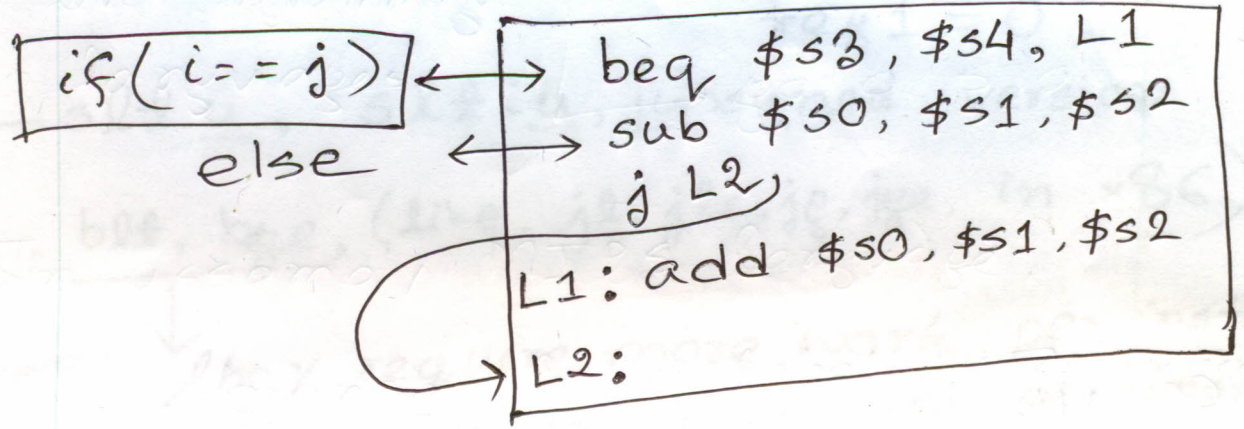 if( i== j) beq $s3, $s4, L1
else sub $s0, $s1, $s2
j L2
L1: add $s0, $s1, $s2
L2: